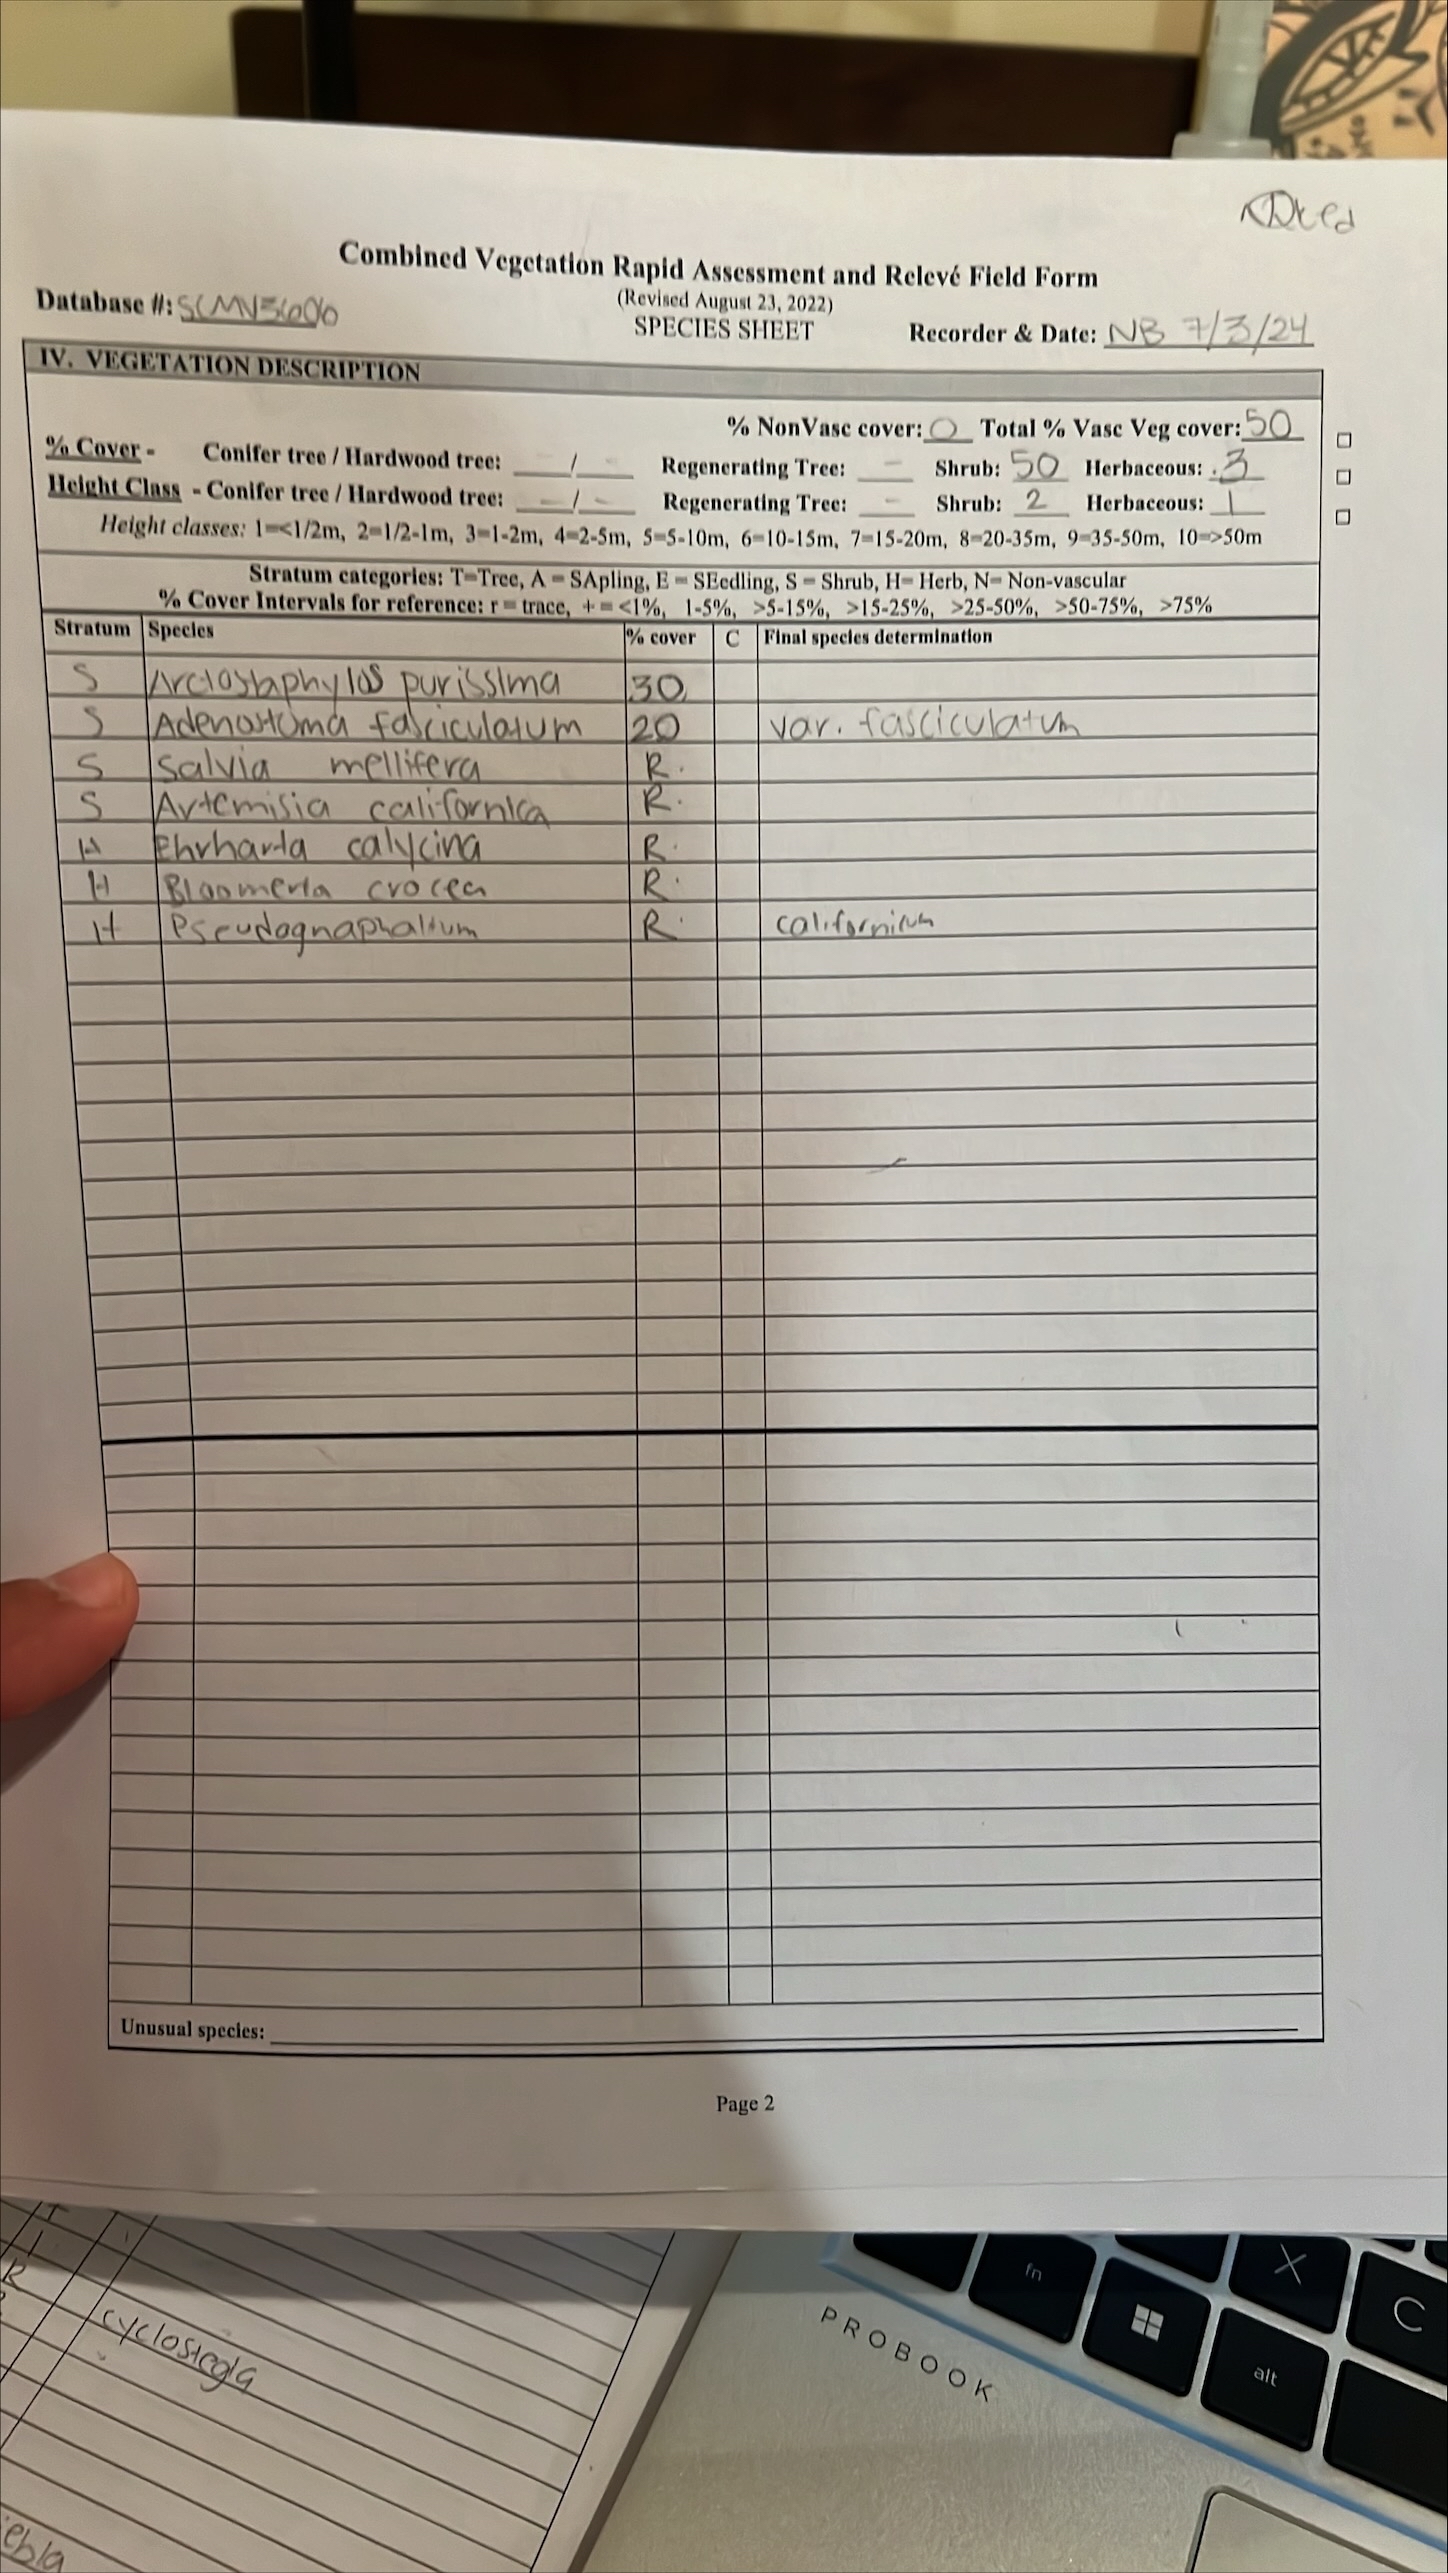 Combined Vegetation Rapid Assessment and Relevé Field Form
(Revised August 23, 2022)
Database #: SCMV3606
SPECIES SHEET
Recorder & Date: NB 7/3/24
IV. VEGETATION DESCRIPTION
% NonVasc cover: 0 Total % Vasc Veg cover: 50
% Cover - Conifer tree / Hardwood tree: - / - Regenerating Tree: - Shrub: 50 Herbaceous: .3
Height Class - Conifer tree / Hardwood tree: - / - Regenerating Tree: - Shrub: 2 Herbaceous: 1
Height classes: 1=<1/2m, 2=1/2-1m, 3=1-2m, 4=2-5m, 5=5-10m, 6=10-15m, 7=15-20m, 8=20-35m, 9=35-50m, 10=>50m
Stratum categories: T=Tree, A = SApling, E = SEedling, S = Shrub, H= Herb, N= Non-vascular
% Cover Intervals for reference: r = trace, + = <1%, 1-5%, >5-15%, >15-25%, >25-50%, >50-75%, >75%
Stratum Species % cover C Final species determination
S Arctostaphylos purissima 30
S Adenostoma fasciculatum 20 var. fasciculatum
S Salvia mellifera R
S Artemisia californica R
H Ehrharta calycina R
H Bloomeria crocea R
H Pseudognaphalium R californicum
Unusual species:
Page 2
R
cyclostegia
fn
X
C
alt
PROBOOK